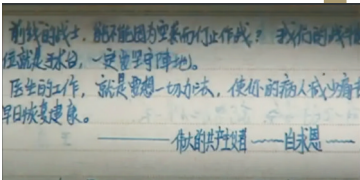 前线的战士，能不能因为空袭而停止作战？我们的战斗
位就是手术台，一定要坚守阵地。
医生的工作，就是要想一切办法，使你的病人减少痛苦
早日恢复健康。
——伟大的共产主义者——白求恩——